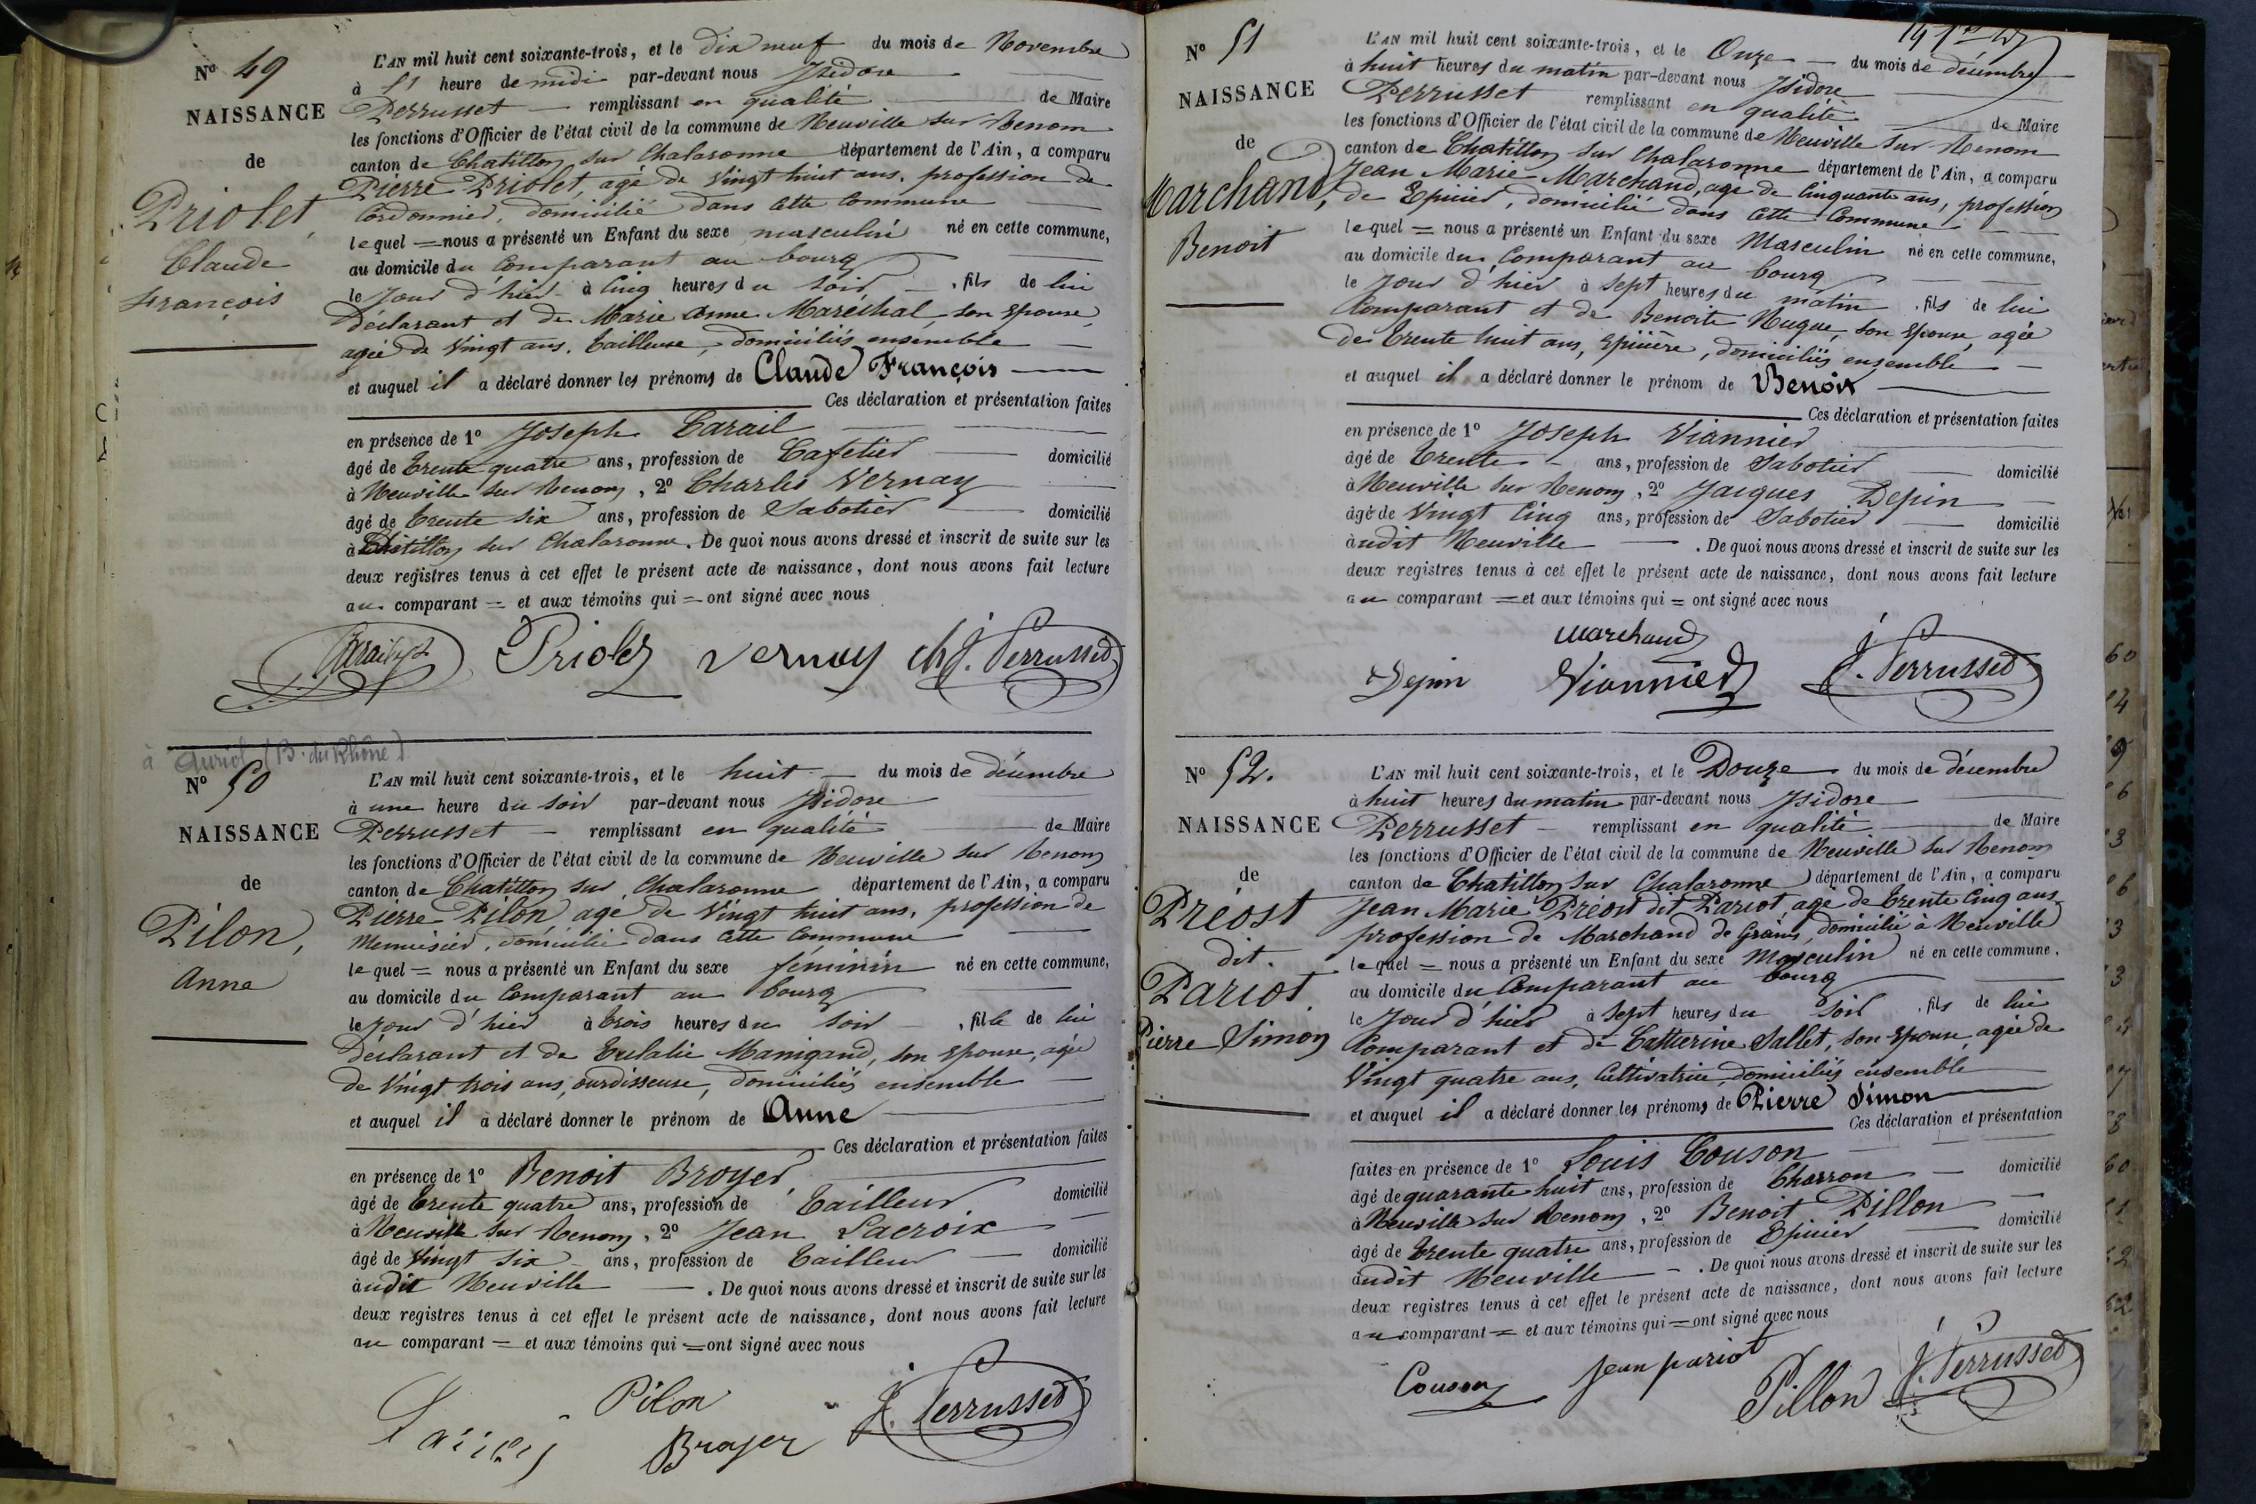 Nº 49
NAISSANCE
de
Priolet,
Claude
François
L'AN mil huit cent soixante-trois, et le dix neuf du mois de Novembre
à 11 heure de midi par-devant nous Isidore
Perrusset remplissant en qualité de Maire
les fonctions d'Officier de l'état civil de la commune de Neuville sur Renom
canton de Chatillon sur Chalaronne département de l'Ain, a comparu
Pierre Priolet, agé de Vingt huit ans, profession de
Cordonnier, domicilié dans cette Commune
lequel = nous a présenté un Enfant du sexe masculin né en cette commune,
au domicile du Comparant au bourg
le jour d'hier à Cinq heures du soir, fils de lui
déclarant et de Marie Anne Maréchal, son Epouse,
agée de Vingt ans, Tailleuse, domiciliés ensemble
et auquel il a déclaré donner les prénoms de Claude François
Ces déclaration et présentation faites
en présence de 1º Joseph Carail
âgé de Trente quatre ans, profession de Cafetier domicilié
à Neuville sur Renom, 2º Charles Vernay
âgé de Trente six ans, profession de Sabotier domicilié
à Chatillon sur Chalaronne. De quoi nous avons dressé et inscrit de suite sur les
deux registres tenus à cet effet le présent acte de naissance, dont nous avons fait lecture
au comparant = et aux témoins qui = ont signé avec nous
Priolet Vernay ch J. Perrusset
à Auriol (B. du Rhône)
Nº 50
NAISSANCE
de
Pilon,
Anne
L'AN mil huit cent soixante-trois, et le huit du mois de décembre
à une heure du soir par-devant nous Isidore
Perrusset remplissant en qualité de Maire
les fonctions d'Officier de l'état civil de la commune de Neuville sur Renom
canton de Chatillon sur Chalaronne département de l'Ain, a comparu
Pierre Pilon, agé de Vingt huit ans, profession de
Menuisier, domicilié dans cette Commune
lequel = nous a présenté un Enfant du sexe féminin né en cette commune,
au domicile du Comparant au bourg
le jour d'hier à trois heures du soir, fille de lui
déclarant et de Eulalie Manigand, son Epouse, agée
de Vingt trois ans, ourdisseuse, domiciliés ensemble
et auquel il a déclaré donner le prénom de Anne
Ces déclaration et présentation faites
en présence de 1º Benoit Broyer
âgé de Trente quatre ans, profession de Tailleur domicilié
à Neuville sur Renom, 2º Jean Lacroix
âgé de Vingt six ans, profession de Tailleur domicilié
àudit Neuville. De quoi nous avons dressé et inscrit de suite sur les
deux registres tenus à cet effet le présent acte de naissance, dont nous avons fait lecture
au comparant = et aux témoins qui = ont signé avec nous
Pilon
Broyer J. Perrusset
Nº 51
NAISSANCE
de
Marchand,
Benoit
L'AN mil huit cent soixante-trois, et le Onze du mois de décembre
à huit heures du matin par-devant nous Isidore
Perrusset remplissant en qualité de Maire
les fonctions d'Officier de l'état civil de la commune de Neuville sur Renom
canton de Chatillon sur Chalaronne département de l'Ain, a comparu
Jean Marie Marchand, agé de Cinquante ans, profession
de Epicier, domicilié dans cette Commune
lequel = nous a présenté un Enfant du sexe Masculin né en cette commune,
au domicile du Comparant au bourg
le jour d'hier à sept heures du matin, fils de lui
Comparant et de Benoite Nugue, son Epouse, agée
de Trente huit ans, Epicière, domiciliés ensemble
et auquel il a déclaré donner le prénom de Benoit
Ces déclaration et présentation faites
en présence de 1º Joseph Viannier
âgé de Trente ans, profession de Sabotier domicilié
à Neuville sur Renom, 2º Jacques Depin
âgé de Vingt Cinq ans, profession de Sabotier domicilié
àudit Neuville. De quoi nous avons dressé et inscrit de suite sur les
deux registres tenus à cet effet le présent acte de naissance, dont nous avons fait lecture
au comparant = et aux témoins qui = ont signé avec nous
Marchand
Depin Viannier J. Perrusset
Nº 52.
NAISSANCE
de
Préost
dit
Pariot
Pierre Simon
L'AN mil huit cent soixante-trois, et le Douze du mois de décembre
à huit heures du matin par-devant nous Isidore
Perrusset remplissant en qualité de Maire
les fonctions d'Officier de l'état civil de la commune de Neuville sur Renom
canton de Chatillon sur Chalaronne département de l'Ain, a comparu
Jean Marie Préost dit Pariot, agé de Trente Cinq ans
profession de Marchand de Grains, domicilié à Neuville
lequel = nous a présenté un Enfant du sexe Masculin né en cette commune,
au domicile du Comparant au bourg
le jour d'hier à sept heures du soir, fils de lui
Comparant et de Catterine Sallet, son Epouse, agée de
Vingt quatre ans, Cultivatrice, domiciliés ensemble
et auquel il a déclaré donner les prénoms de Pierre Simon
Ces déclaration et présentation
faites en présence de 1º Louis Couson
âgé de quarante huit ans, profession de Charron domicilié
à Neuville sur Renom, 2º Benoit Pillon
âgé de Trente quatre ans, profession de Epicier domicilié
àudit Neuville. De quoi nous avons dressé et inscrit de suite sur les
deux registres tenus à cet effet le présent acte de naissance, dont nous avons fait lecture
au comparant = et aux témoins qui = ont signé avec nous
Couson Jean pariot Pillon J. Perrusset